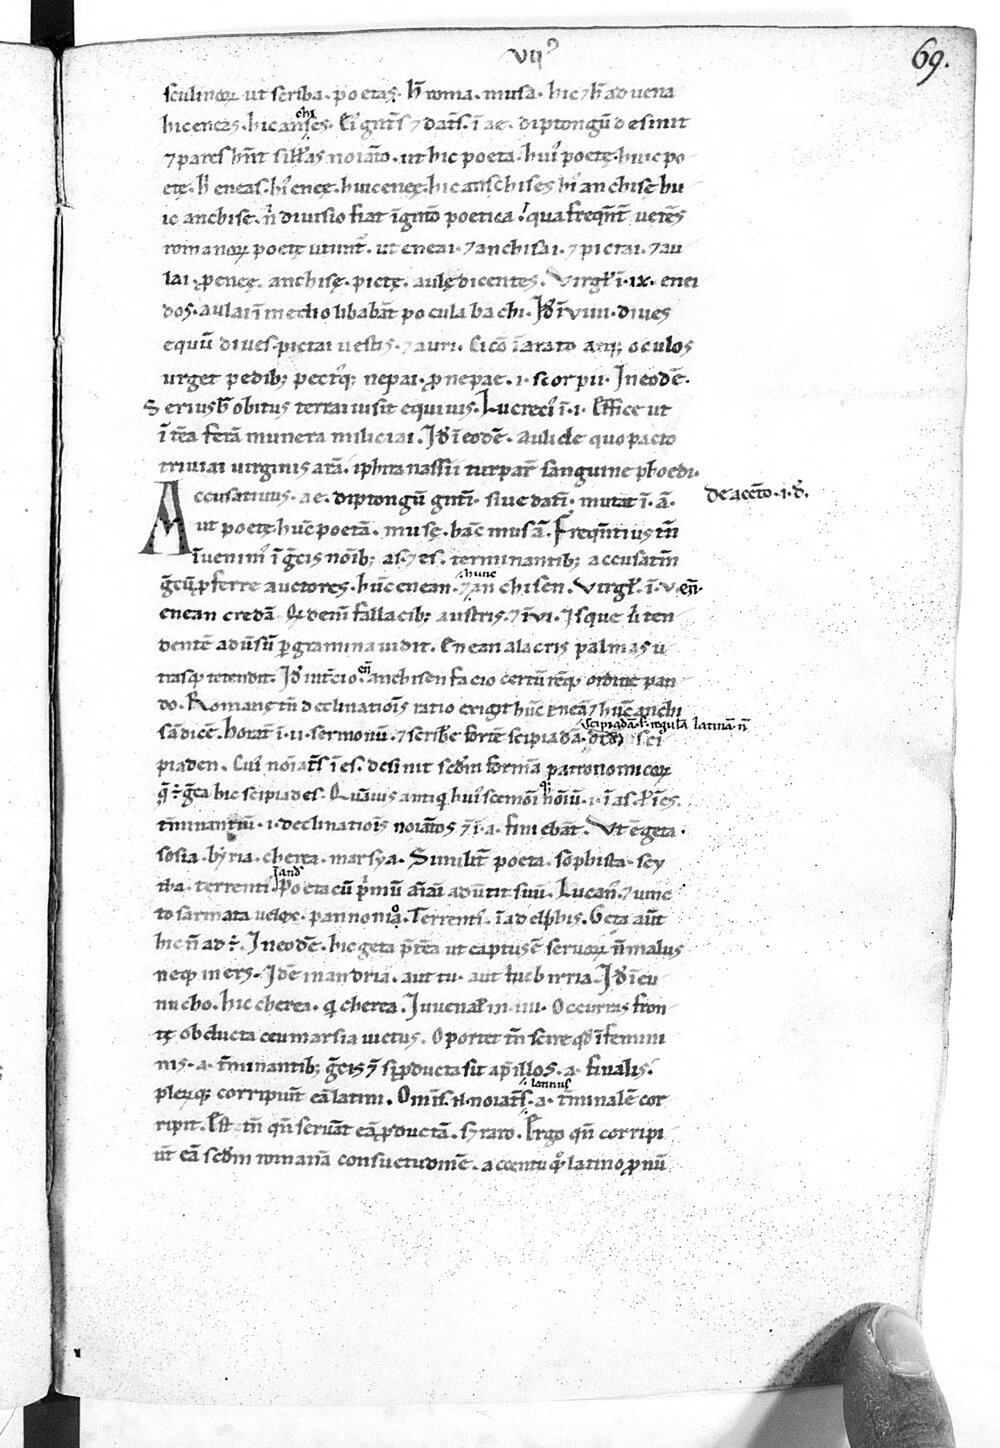 VIIꝰ
69.
sculinoꝝ ut scriba. poetas. h̄ roma. musa. hic ⁊ h̄ aduena
hic eneas. hic anchises. Eiꝰ gn̄ts ⁊ dat̄s. ī ae. diptongū desinit
⁊ pares hn̄t sill'as noiātō. ut hic poeta. huiꝰ poetę. huic po
etę. h' eneas. hꝰ enęę. huic enęę. hic anschises hꝰ anchisę hu
ic anchisę. n̄ diuisio fiat ī gn̄tō poetica. qua freqn̄t uet̄es
romanoꝝ poetę utunt̄. ut eneai. ⁊ anchisai. ⁊ pictai. ⁊ au
lai. ꝓ eneę. anchisę. pictę. aulę dicentes. Virgł. ī. ix. enei
dos. aulai ī medio libabāt pocula bachi. Id' ī viiii. diues
equū diues. pictai uestis. ⁊ auri. Cicō ī arato atqꝫ oculos
urget pedibꝫ pectꝰqꝫ nepai. ꝓ nepae. i. scorpii. In eodē.
Seriusħ obitus terrai uisit equi uis. Lucreciꝰ ī. i. Effice ut
ī tēa ferā munera miliciai. Id' ī eodē. Aulide quo pacto
triuiai uirginis arā. iphianassii turpar̄ sanguine phoedi.
Accusatiuus. ae. diptongū gn̄ti. siue dati. mutat ī. ā.
de accn̄to. i. d'.
ut poetę. huc̄ poetā. musę. hāc musā. Freqn̄tius tn̄
īuenimꝰ ī gr̄cis noībꝫ as. ⁊ es. terminantibꝫ accusatiū
gr̄cū ꝓferre auctores. huc̄ enean. ⁊ hunc anchisen. Virgł. ī. v. en̄.
enean credā. Qd' eni fallacibꝫ austris. ⁊ ī vi. Isque ubi ten
dentē aduersū ꝑ gramina uidit. Enean alacris palmas u
trasqꝫ tetendit. Id' int̄cio. en̄ anchisen facio certū remqꝫ ordine pan
do. Romanę tn̄ declinatiois ratio exigit huc̄ eneā ⁊ huc̄ anchi
scipiadā. s. regula latinā n̄
sā dicē. Horatꝰ ī. ii. sermonū. ⁊ scribē forte scipiadā. sci
piaden. Cuiꝰ noiāt̄s ī es. desinit sc̄dm formā patronomicoꝝ
q̄ ÷ gr̄ca hic scipiades. Quāuis antiqi huiꝰscemōi nōiū. i. ī as. ł ī es.
tm̄inantiū. i. declinatiois noiātos ⁊ ī. a. finiebāt. Vt ē geta.
sosia. byria. cherea. marsya. Similit̄ poeta. sophista. scy
tha. terrentiꝰ ī and' Poeta cū p'mū aīaū ad scribendū. Lucanꝰ. ⁊ uinc
to sarmata uelox. pannonio. Terrentiꝰ. ī adelphis. Geta aut̄
hic n̄ adē. In eodē. hic geta p̄tēa ut captusē seruoꝝ n̄ malus
neqꝫ iners. Idē in andria. aut tu. aut hic birria. Id' ī eu
nucho. hic cherea. qi cherea. Iuuenał in. iiii. Occurras fron
te obducta ceu marsia uictus. Oportet tn̄ scire qd' ī femini
nis. a. tm̄inantibꝫ gr̄cis ⁊ si ꝓducta sit ap̄ illos. a. finalis.
pleruqꝫ corripiunt eā latini. Om̄is. n. noiāt̄s. a. tm̄inalē cor
ripit. Est tn̄ qn̄ seruāt eā ꝓductā. s; raro. Ergo qn̄ corripi
ūt eā sc̄dm romanā consuetudinē. accentu qꝰ latino ꝓnū